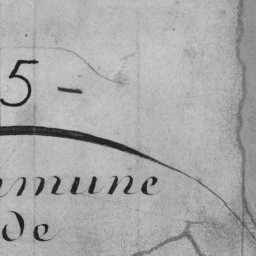 5 -
mmune
de